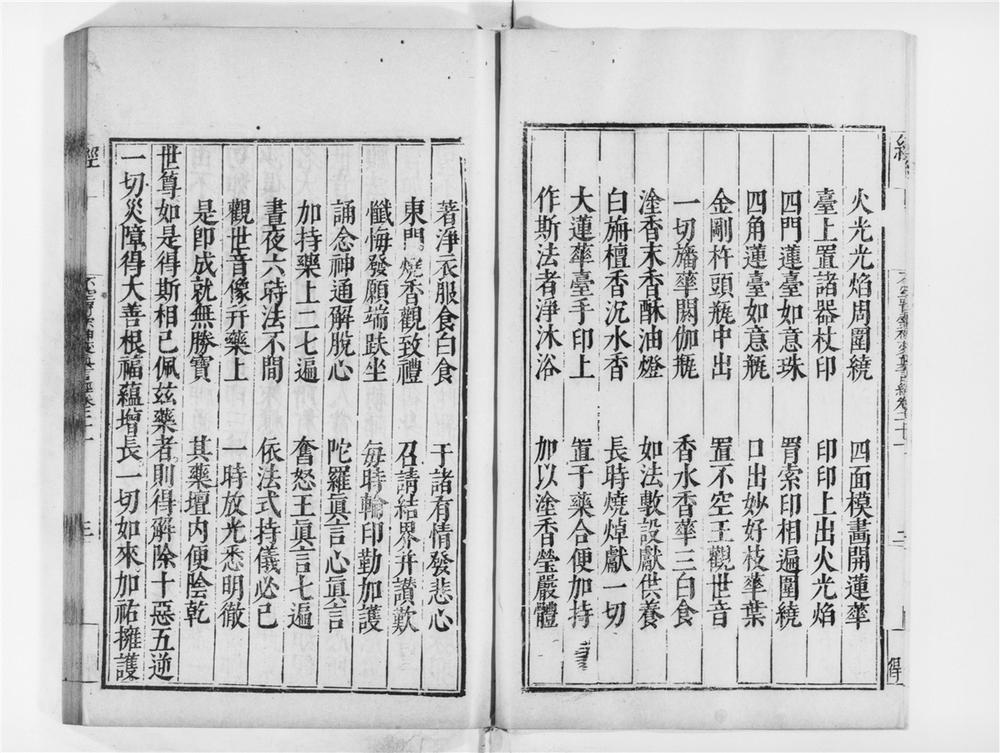 火光光焰周圍繞　四面模畫開蓮華
臺上置諸器杖印　印印上出火光焰
四門蓮臺如意珠　罥索印相遍圍繞
四角蓮臺如意瓶　口出妙好枝華葉
金剛杵頭瓶中出　置不空王觀世音
一切旛華閼伽瓶　香水香華三白食
塗香末香酥油燈　如法敷設獻供養
白旃檀香沉水香　長時燒焯獻一切
大蓮華臺手印上　置于藥合便加持
作斯法者淨沐浴　加以塗香瑩嚴體
著淨衣服食白食　于諸有情發悲心
東門燒香觀致禮　召請結界并讃歎
懺悔發願端趺坐　每時輪印勤加護
誦念神通解脫心　陀羅眞言心眞言
加持藥上二七遍　奮怒王眞言七遍
晝夜六時法不間　依法式持儀必已
觀世音像幷藥上　一時放光悉明徹
是卽成就無勝寶　其藥壇内便陰乾
世尊如是得斯相已佩兹藥者則得解除十惡五逆
一切災障得大善根福蘊增長一切如來加祐擁護